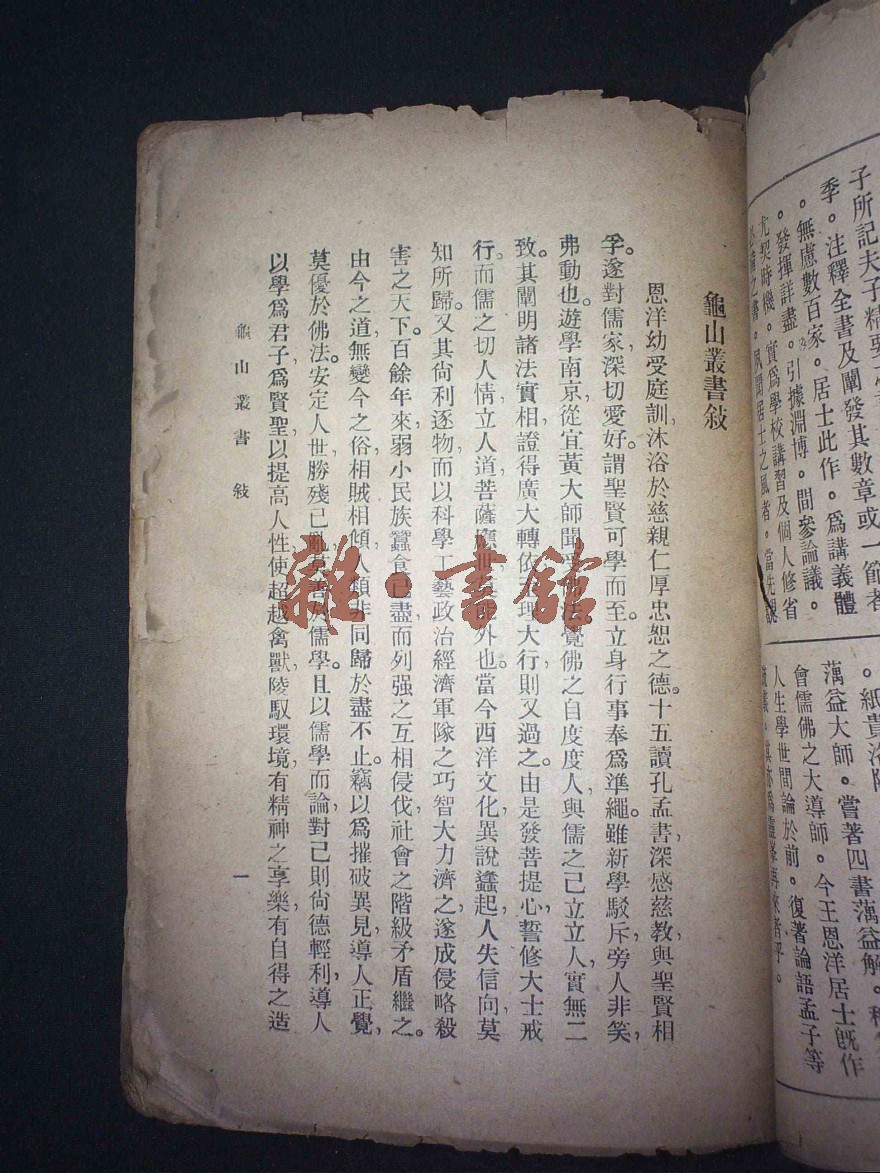 子所記夫子精要
季。注釋全書及闡發其數章或一節者
。無慮數百家。居士此作。爲講義體
。發揮詳盡。引據淵博。間參論議。
尤契時機。實爲學校講習及個人修省
之書。夙聞居士之風者。當先覩
。紙貴洛陽
蕅益大師。嘗著四書蕅益解。
會儒佛之大導師。今王恩洋居士既作
人生學世間論於前。復著論語孟子等
疏義。真亦爲靈峯再來者乎。
龜山叢書敍
恩洋幼受庭訓，沐浴於慈親仁厚忠恕之德。十五讀孔孟書，深感慈教與聖賢相
孚。遂對儒家深切愛好。謂聖賢可學而至。立身行事奉爲準繩。雖新學駁斥，旁人非笑，
弗動也。遊學南京，從宜黃大師聞受佛法，覺佛之自度度人，與儒之己立立人，實無二
致。其闡明諸法實相，證得廣大轉依，玄理大行，則又過之。由是發菩提心，誓修大士戒
行。而儒之切人情，立人道，菩薩應世莫能外也。當今西洋文化異說蠭起，人失信向，莫
知所歸。又其尙利逐物，而以科學工藝政治經濟軍隊之巧智大力濟之，遂成侵略殺
害之天下。百餘年來，弱小民族蠶食已盡，而列强之互相侵伐，社會之階級矛盾繼之。
由今之道，無變今之俗，相賊相傾，人類非同歸於盡不止。竊以爲摧破異見，導人正覺，
莫優於佛法。安定人世，勝殘已亂，莫善於儒學。且以儒學而論，對己則尙德輕利，導人
以學爲君子爲賢聖，以提高人性，使超越禽獸，陵馭環境，有精神之享樂，有自得之造
龜山叢書 敍
一
雜·書館